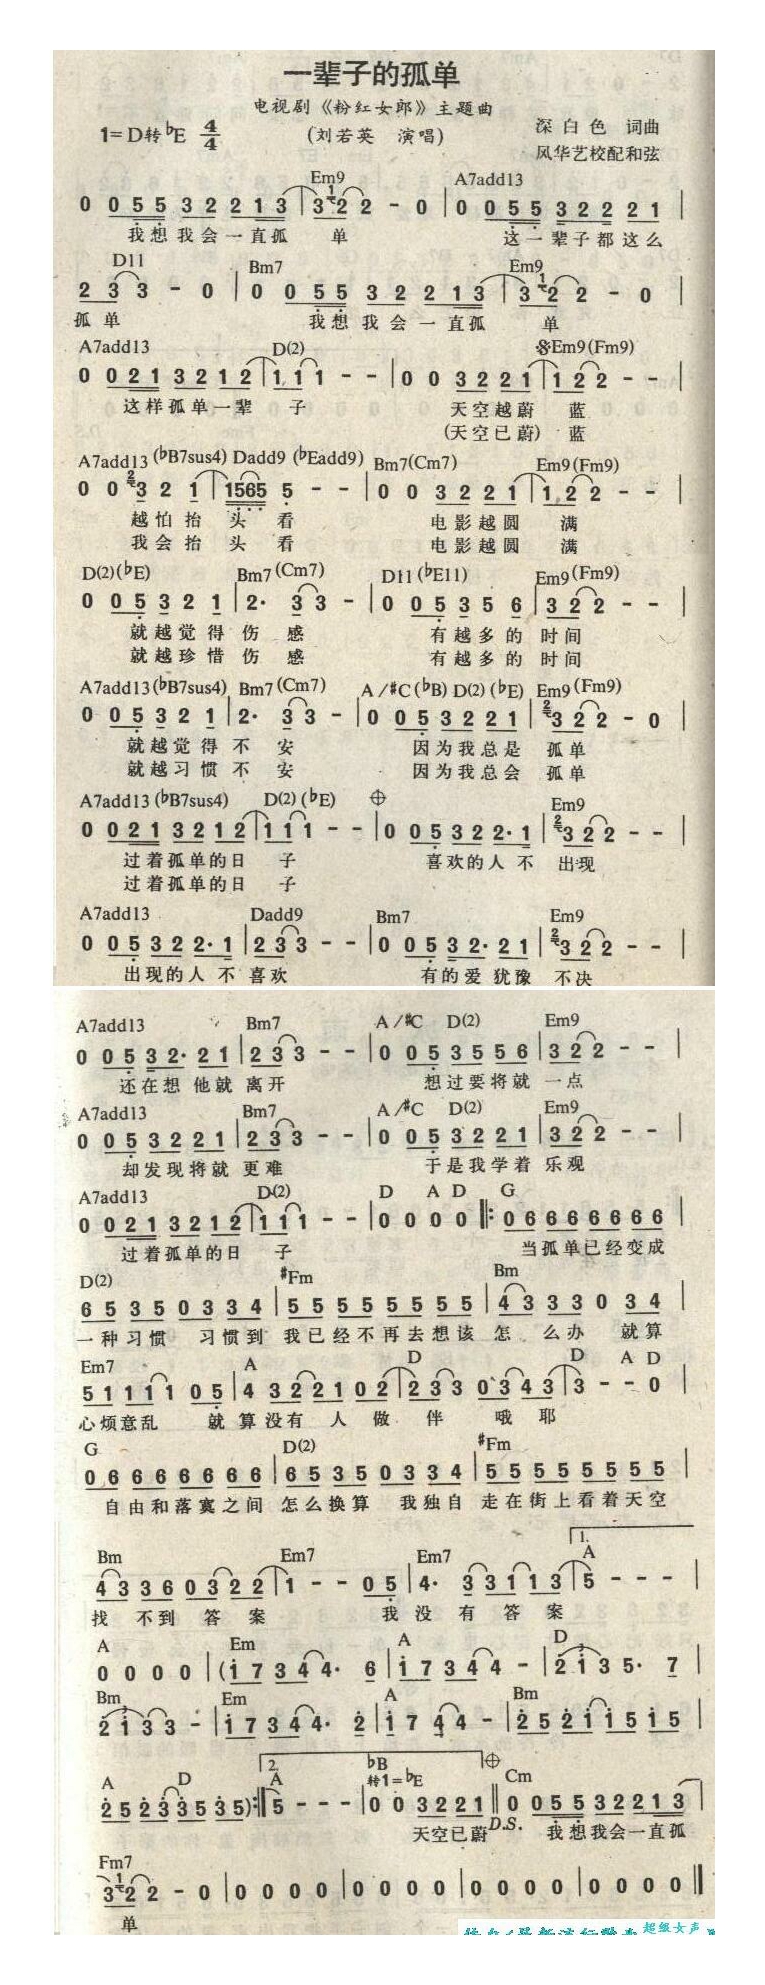 一辈子的孤单
电视剧《粉红女郎》主题曲
1=D转♭E 4/4 (刘若英 演唱) 深白色 词曲
风华艺校配和弦
Em9 A7add13
0 0 5 5 3 2 2 1 3 | 3 1 2 2 - 0 | 0 0 5 5 3 2 2 2 1 |
我想我会一直孤 单 这一辈子都这么
D11 Bm7 Em9
2 3 3 - 0 | 0 0 5 5 3 2 2 1 3 | 3 1 2 2 - 0 |
孤单 我想我会一直孤 单
A7add13 D(2) 𝄋Em9(Fm9)
0 0 2 1 3 2 1 2 | 1 1 1 - - | 0 0 3 2 2 1 | 1 2 2 - - |
这样孤单一辈 子 天空越蔚 蓝
(天空已蔚) 蓝
A7add13 (♭B7sus4) Dadd9 (♭Eadd9) Bm7(Cm7) Em9(Fm9)
0 0 2 3 2 1 | 1565 5 - - | 0 0 3 2 2 1 | 1 2 2 - - |
越怕抬 头 看 电影越圆 满
我会抬 头 看 电影越圆 满
D(2)(♭E) Bm7(Cm7) D11(♭E11) Em9(Fm9)
0 0 5 3 2 1 | 2· 3 3 - | 0 0 5 3 5 6 | 3 2 2 - - |
就越觉得 伤 感 有越多的 时间
就越珍惜 伤 感 有越多的 时间
A7add13(♭B7sus4) Bm7(Cm7) A/♯C(♭B) D(2)(♭E) Em9(Fm9)
0 0 5 3 2 1 | 2· 3 3 - | 0 0 5 3 2 2 1 | 2 3 2 2 - 0 |
就越觉得 不 安 因为我总是 孤单
就越习惯 不 安 因为我总会 孤单
A7add13 (♭B7sus4) D(2)(♭E) 𝄌 Em9
0 0 2 1 3 2 1 2 | 1 1 1 - - | 0 0 5 3 2 2· 1 | 2 3 2 2 - - |
过着孤单的日 子 喜欢的人 不 出现
过着孤单的日 子
A7add13 Dadd9 Bm7 Em9
0 0 5 3 2 2· 1 | 2 3 3 - - | 0 0 5 3 2· 2 1 | 2 3 2 2 - - |
出现的人 不 喜欢 有的爱 犹豫 不决
A7add13 Bm7 A/♯C D(2) Em9
0 0 5 3 2· 2 1 | 2 3 3 - - | 0 0 5 3 5 5 6 | 3 2 2 - - |
还在想 他就 离开 想过要将就 一点
A7add13 Bm7 A/♯C D(2) Em9
0 0 5 3 2 2 1 | 2 3 3 - - | 0 0 5 3 2 2 1 | 3 2 2 - - |
却发现将就 更难 于是我学着 乐观
A7add13 D(2) D A D G
0 0 2 1 3 2 1 2 | 1 1 1 - - | 0 0 0 0 ‖: 0 6 6 6 6 6 6 6 |
过着孤单的日 子 当孤单已经变成
D(2) ♯Fm Bm
6 5 3 5 0 3 3 4 | 5 5 5 5 5 5 5 5 | 4 3 3 3 0 3 4 |
一种习惯 习惯到 我已经不再去想该 怎 么办 就算
Em7 A D D A D
5 1 1 1 1 0 5 | 4 3 2 2 1 0 2 | 2 3 3 0 3 4 3 | 3 - - 0 |
心烦意乱 就 算没有 人 做 伴 哦 耶
G D(2) ♯Fm
0 6 6 6 6 6 6 6 | 6 5 3 5 0 3 3 4 | 5 5 5 5 5 5 5 5 |
自由和落寞之间 怎么换算 我独自 走在街上看着天空
Bm Em7 Em7 1. A
4 3 3 6 0 3 2 2 | 1 - - 0 5 | 4· 3 3 1 1 3 | 5 - - - |
找 不到 答 案 我 没 有 答 案
A Em A D
0 0 0 0 | (1 7 3 4 4· 6 | 1 7 3 4 4 - | 2 1 3 5· 7 |
Bm Em A Bm
2 1 3 3 - | 1 7 3 4 4· 2 | 1 7 4 4 - | 2 5 2 1 1 5 1 5 |
A D 2. A ♭B 转1=♭E 𝄌 Cm
2 5 2 3 3 5 3 5) :‖ 5 - - - | 0 0 3 2 2 1 ‖ 0 0 5 5 3 2 2 1 3 |
天空已蔚 D.S. 我想我会一直孤
Fm7
3 1 2 2 - 0 | 0 0 0 0 | 0 0 0 0 | 0 0 0 0 | 0 0 0 0 ‖
单
超级女声